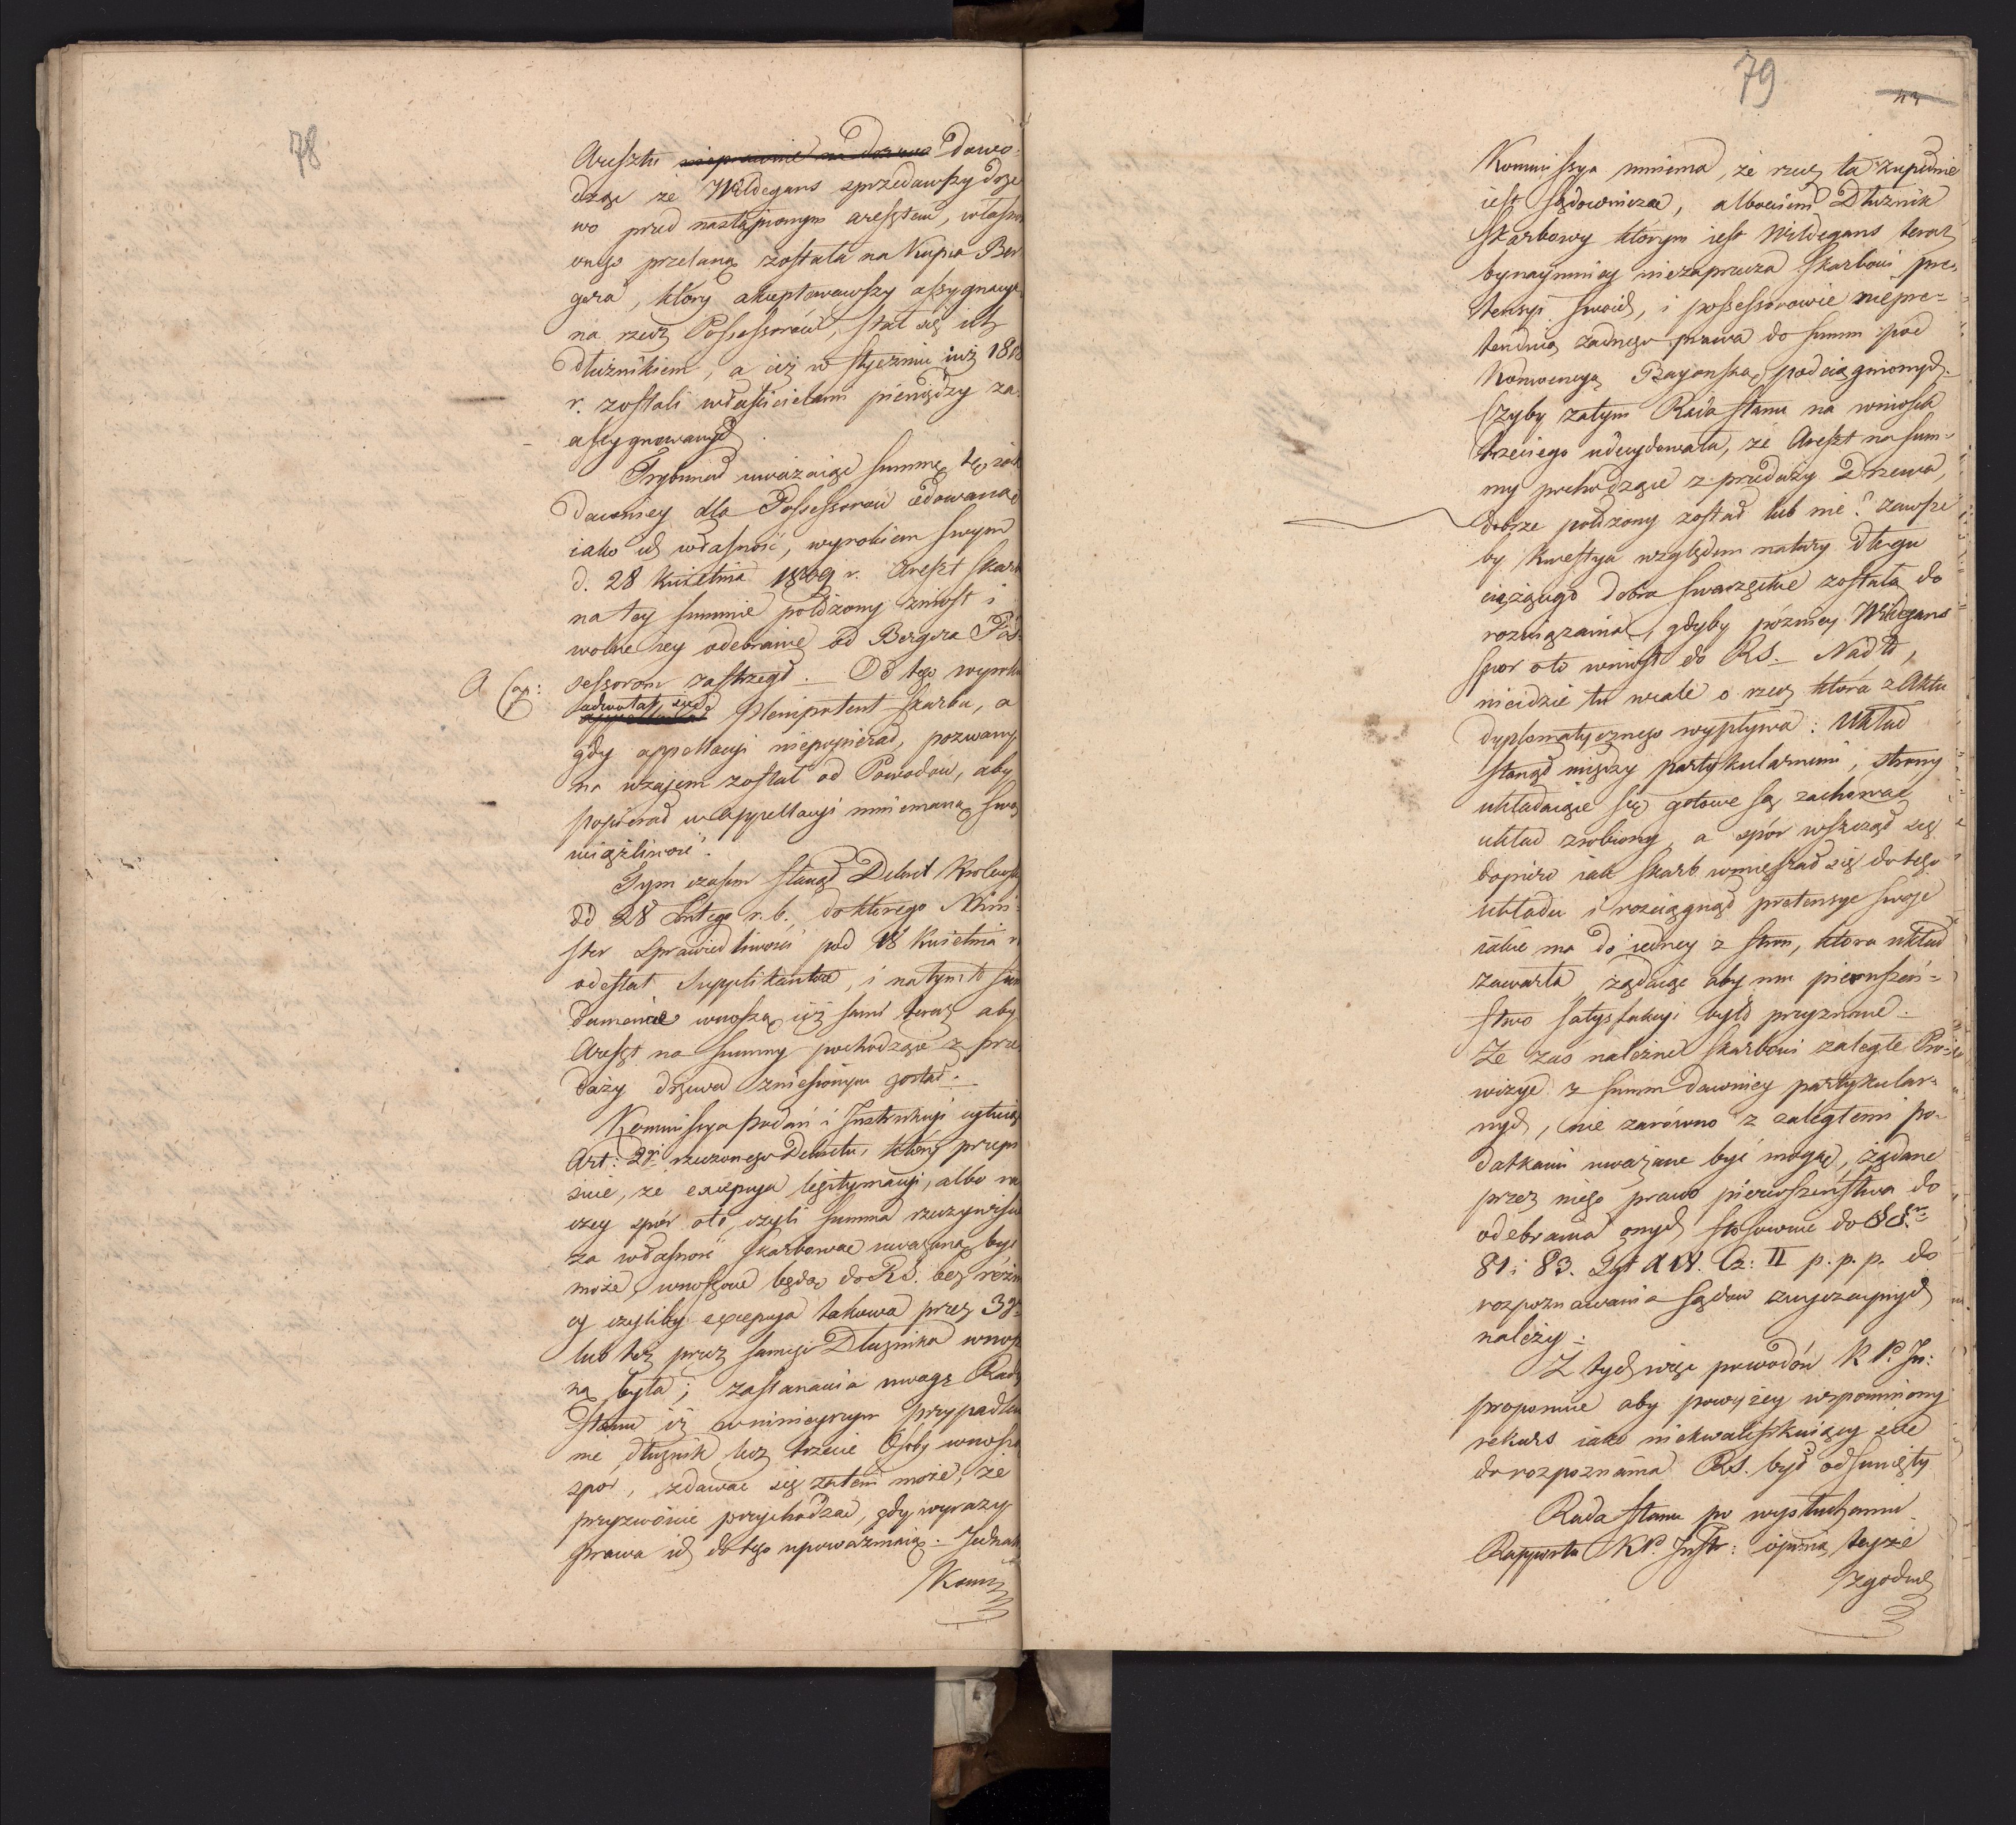 78
Aresztu dowo-
dząc że Wildegans sprzedawszy drze
wo przed nastąpionym aresztem, własn
onego przelaną została na Kupca Ber
gera, który akceptowawszy assygnacye
na rzecz Possessorów, stał się ich
dłużnikiem, a ciż w styczniu już 1808
r. zostali właścicielami pieniędzy za-
assygnowanych.
Trybunał uważaiąc summę tę iak
dawniey dla Possessorów cedowaną
iako ich własność, wyrokiem swym
d. 28 Kwietnia 1809 r. Areszt skarb
na tey summie położony zniosł i
wolne iey odebranie od Bergera Pos-
sessorom zastrzegł. — Od tego wyroku
A
adwołał się Plenipotent skarbu, a
gdy appellacyi niepopierał, pozwany
na wzajem został od Powodów, aby
popierał w Appellacyi mniemaną swą
uciążliwość.
Tym czasem stanął Dekret Krolewsk
dd 28 Lutego r. b. do ktorego Mini-
ster Sprawiedliwości pod 18 Kwietnia r.
odesłał Supplikantów, i na tymto fun
damencie wnoszą iiż sami teraz aby
Areszt na summy pochodzące z prze
daży drzewa zniesionym został. —
Kommissya Podań i Instrukcyi cytuiąc
Art: 2gi rzeczonego Dekretu, który przepi
suie, że excepcya legitymacyi, albo ra
czey spór oto, czyli summa rzeczywiście
za własność skarbową uważaną być
może, wnoszone będą do R.S. bez różni
cy czyliby excepcya takowa przez 3go
lub też przez samego Dłużnika wnosz
ną była; zastanawia uwagę Rady
Stanu iż w ninieyszym przypadku
nie dłużnik lecz trzecie Osoby wnoszą
spór, zdawać się zatem może, że
przyzwoicie przychodzą, gdy wyrazy
prawa ich do tego upoważniaią. — Jednak
Komm
79
Kommissya mniema, że rzecz ta zupełnie
iest sądownicza, albowiem Dłużnik
skarbowy którym iest Wildegans teraz
bynaymniey niezaprzecza skarbowi pre-
tensyi swoich, i possessorowie niepre-
tenduią żadnego prawa do summ pod
Konwencyą Bayonską podciągnionych.
Czyby zatym Rada Stanu na wniosek
trzeciego udecydowała, że Areszt na sum-
my pochodzące z przedaży Drzewa,
dobrze położony został lub nie? zawsze
by kwestya względem natury długu
ciążącego Dobra Swarzęckie została do
rozwiązania, gdyby późniey Wildegans
spor oto wniosł do RS. — Nadto,
nieidzie tu wcale o rzecz która z Aktu
dyplomatycznego wypływa: Układ
stanął między partykularnemi, strony
układaiące się gotowe są zachować
układ zrobiony, a spór wszczął się
dopiero iak skarb wmieszał się do tego
układu i rozciągnął pretensye swoje
iakie ma do iedney z stron, która układ
zawarła żądaiąc aby mu pierwszeń-
stwo satysfakcyi było przyznane. —
Że zaś należne skarbowi zaległe Pro-
wizye z summ dawniey partykular-
nych, nie zarówno z zaległemi po-
datkami uważane być mogą, żądane
przez niego prawo pierwszeństwa do
odebrania onych stosownie do §§
81 i 83. Cz: II p. p. p. do
rozpoznawania sądow zwyczaynych
należy. —
Z tych więc powodów K P. In:
proponuie aby powyżey wspomniony
rekurs iako niekwalifikuiący się
do rozpoznania RS. był odsunięty
Rada Stanu po wysłuchaniu
Rapportu KP. Instr: opinią teyże
zgodną